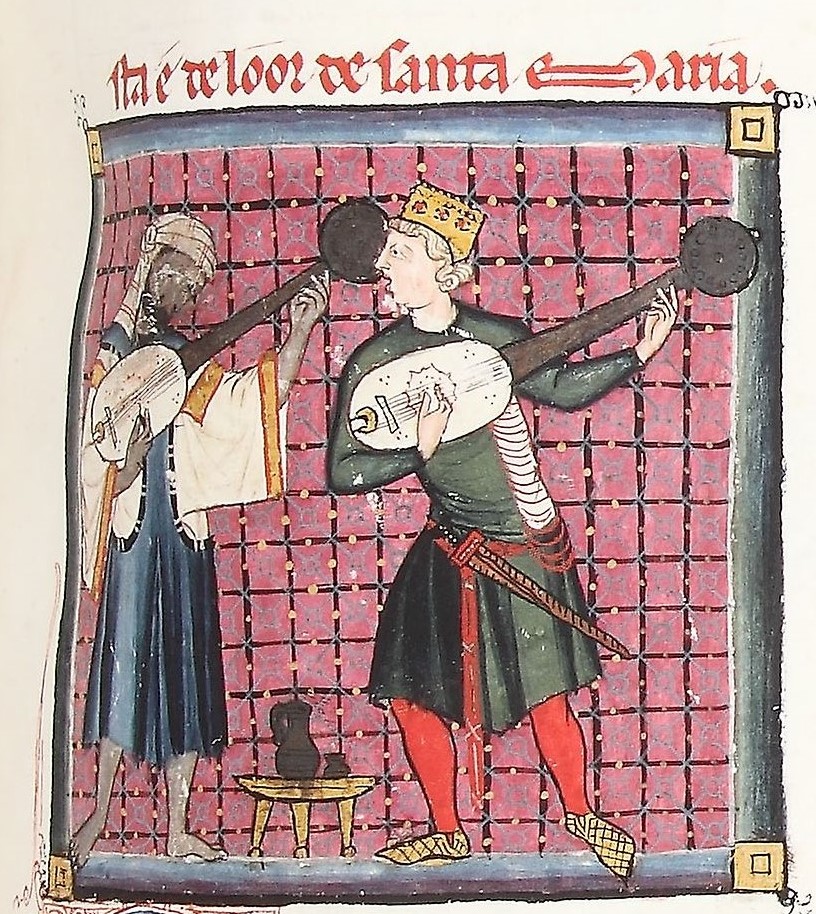 sta é de loor de santa Maria.